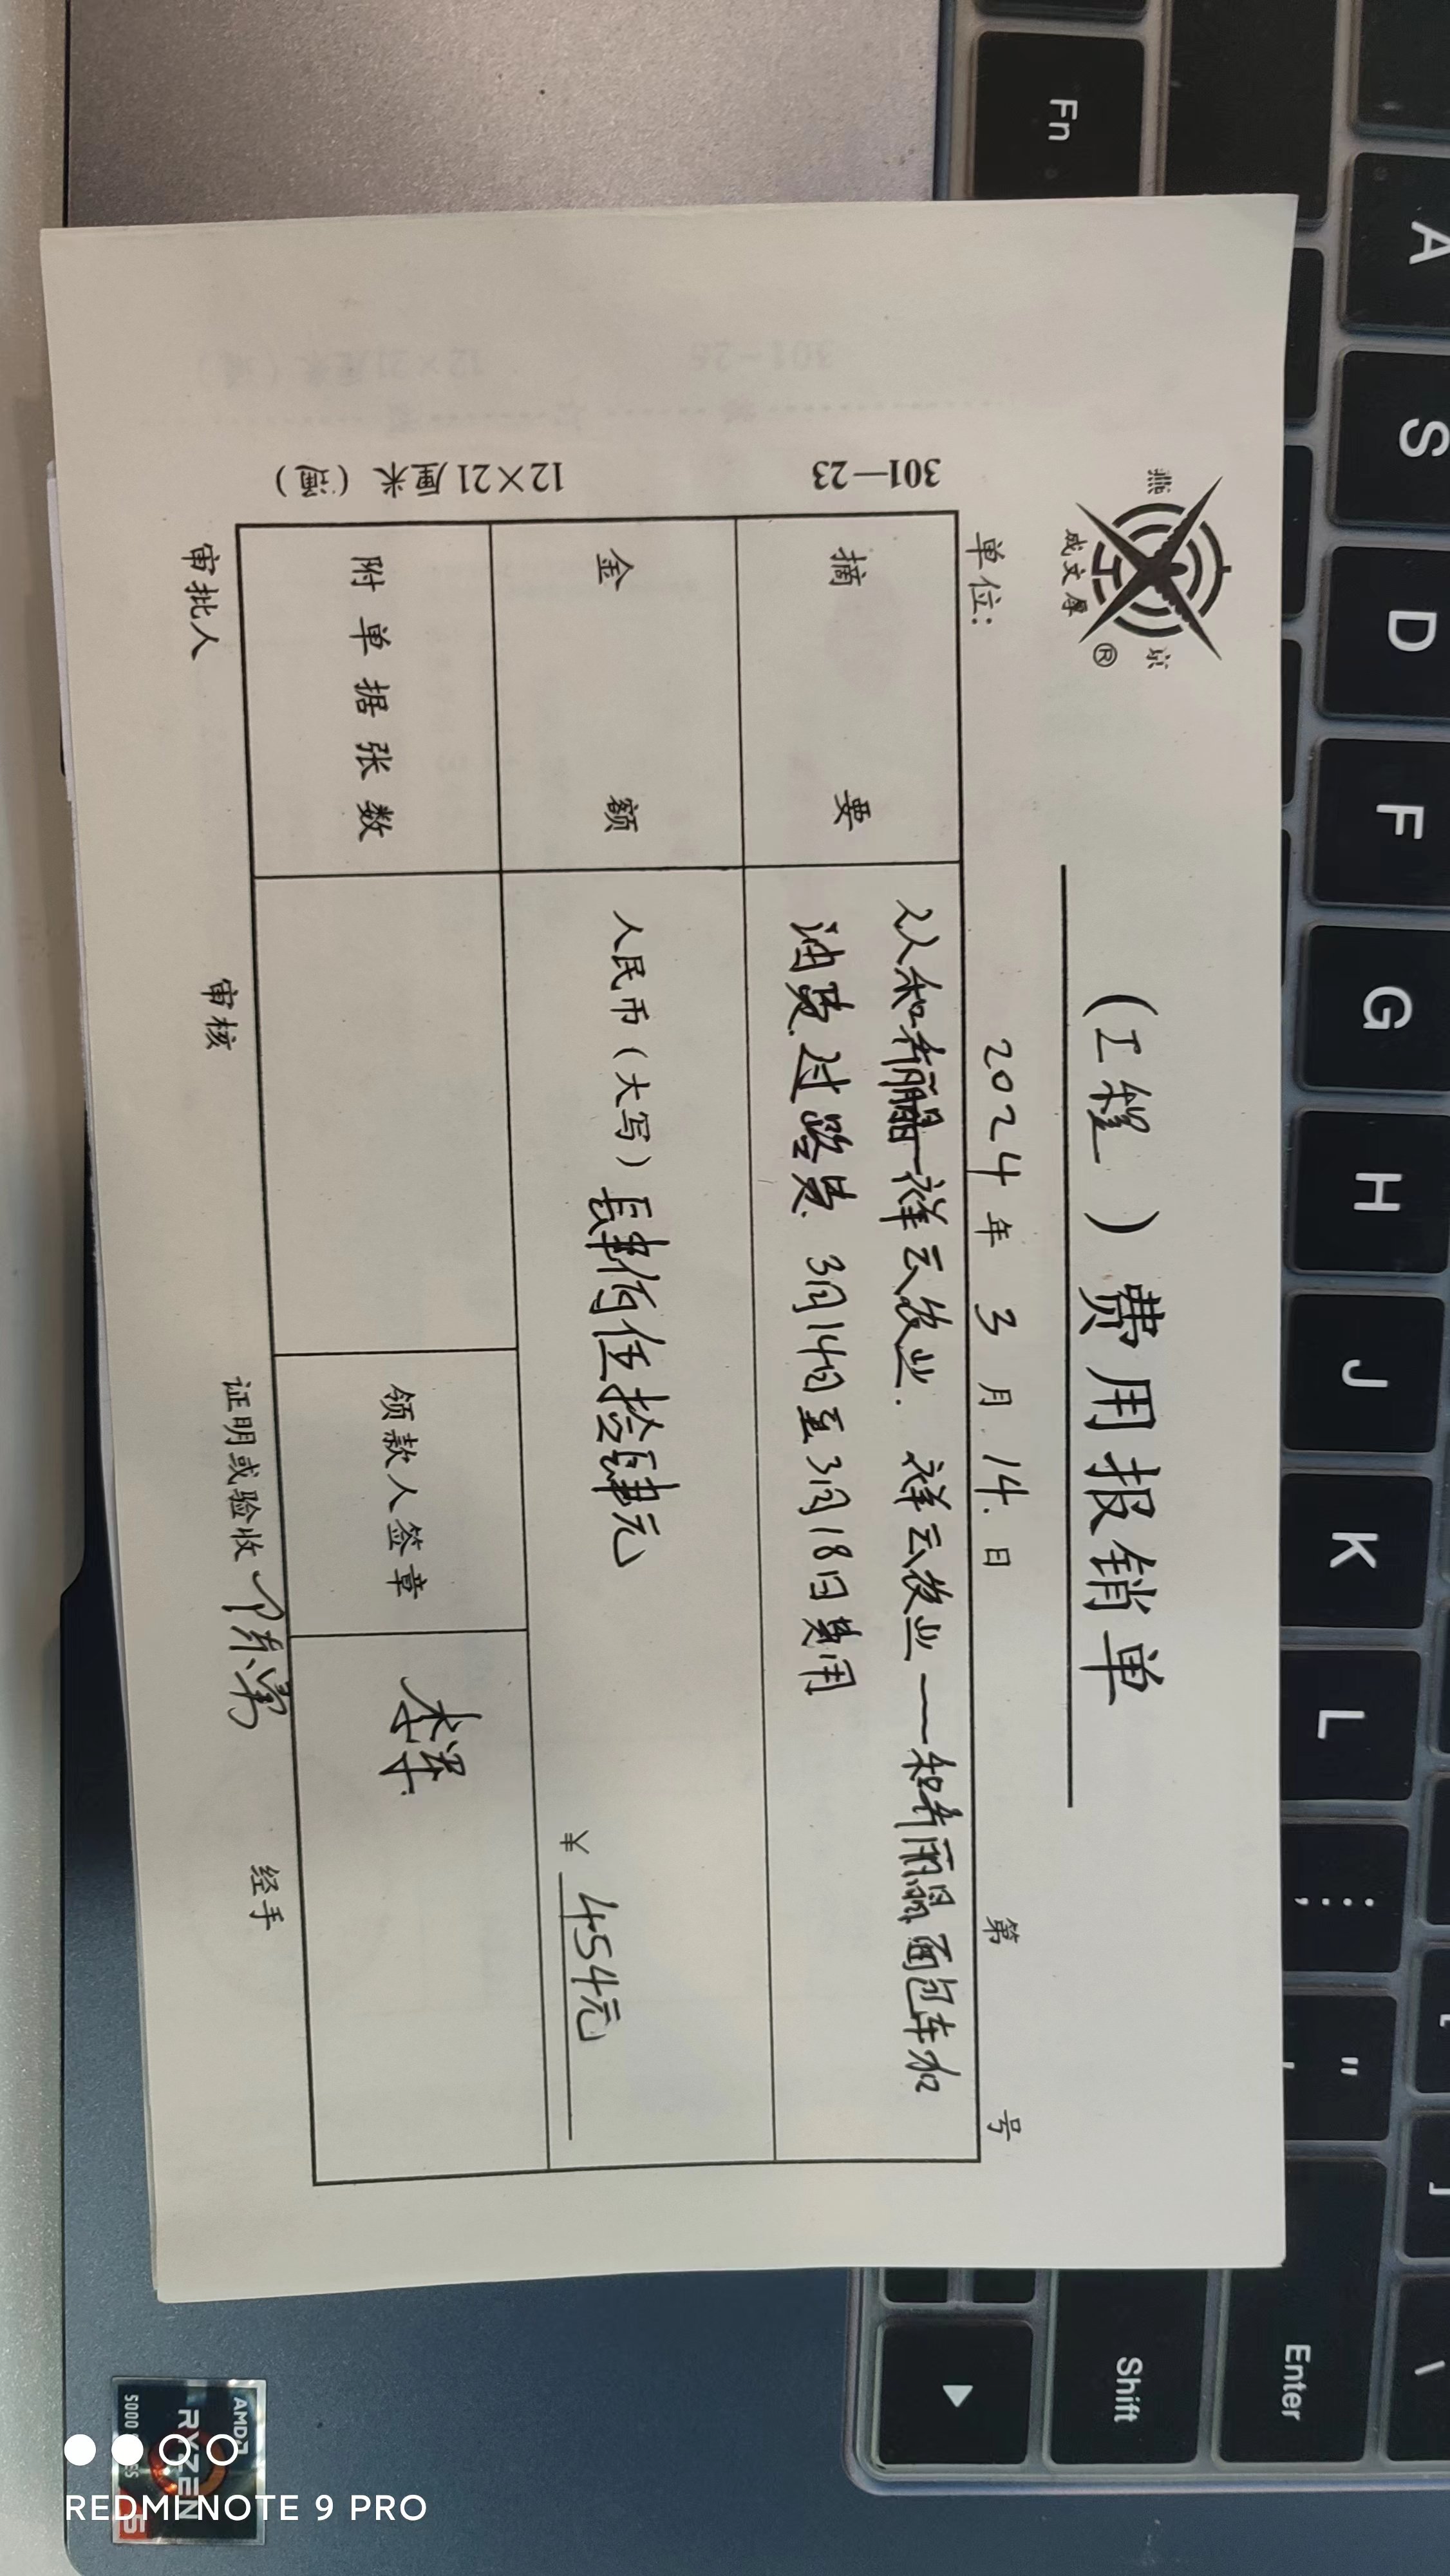 燕京
成文厚®
(工程)费用报销单
单位:
2024年3月14日
第 号
摘要
从和寿丽晶—祥云农业. 祥云农业—和寿丽晶面包车加
油费.过路费. 3月14日至3月18日费用
金额
人民币(大写)肆佰伍拾肆元
¥ 454元
附单据张数
领款人签章
审批人
审核
证明或验收
经手
301—23
12×21厘米(通)
Fn
A
S
D
F
G
H
J
K
L
:
;
"
'
Enter
Shift
AMD
RYZEN
5
5000
REDMI NOTE 9 PRO